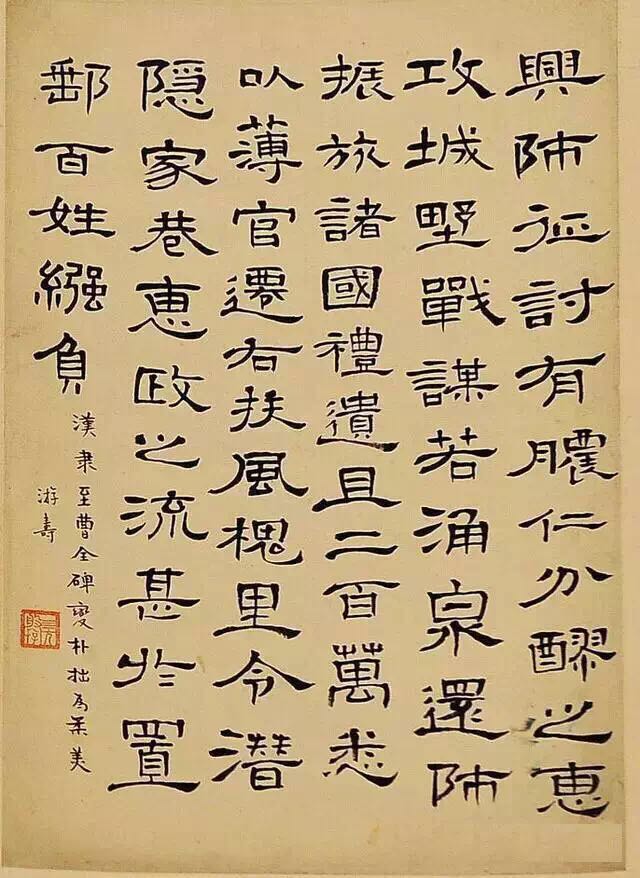 興師征討有膿仁分醪之惠
攻城墅戰謀若涌泉還師
振旅諸國禮遺且二百萬悉
以薄官遷右扶風槐里令潛
隐家巷惠政之流甚於置
郵百姓繈負
漢隶至曹全碑變朴拙為柔美
游壽